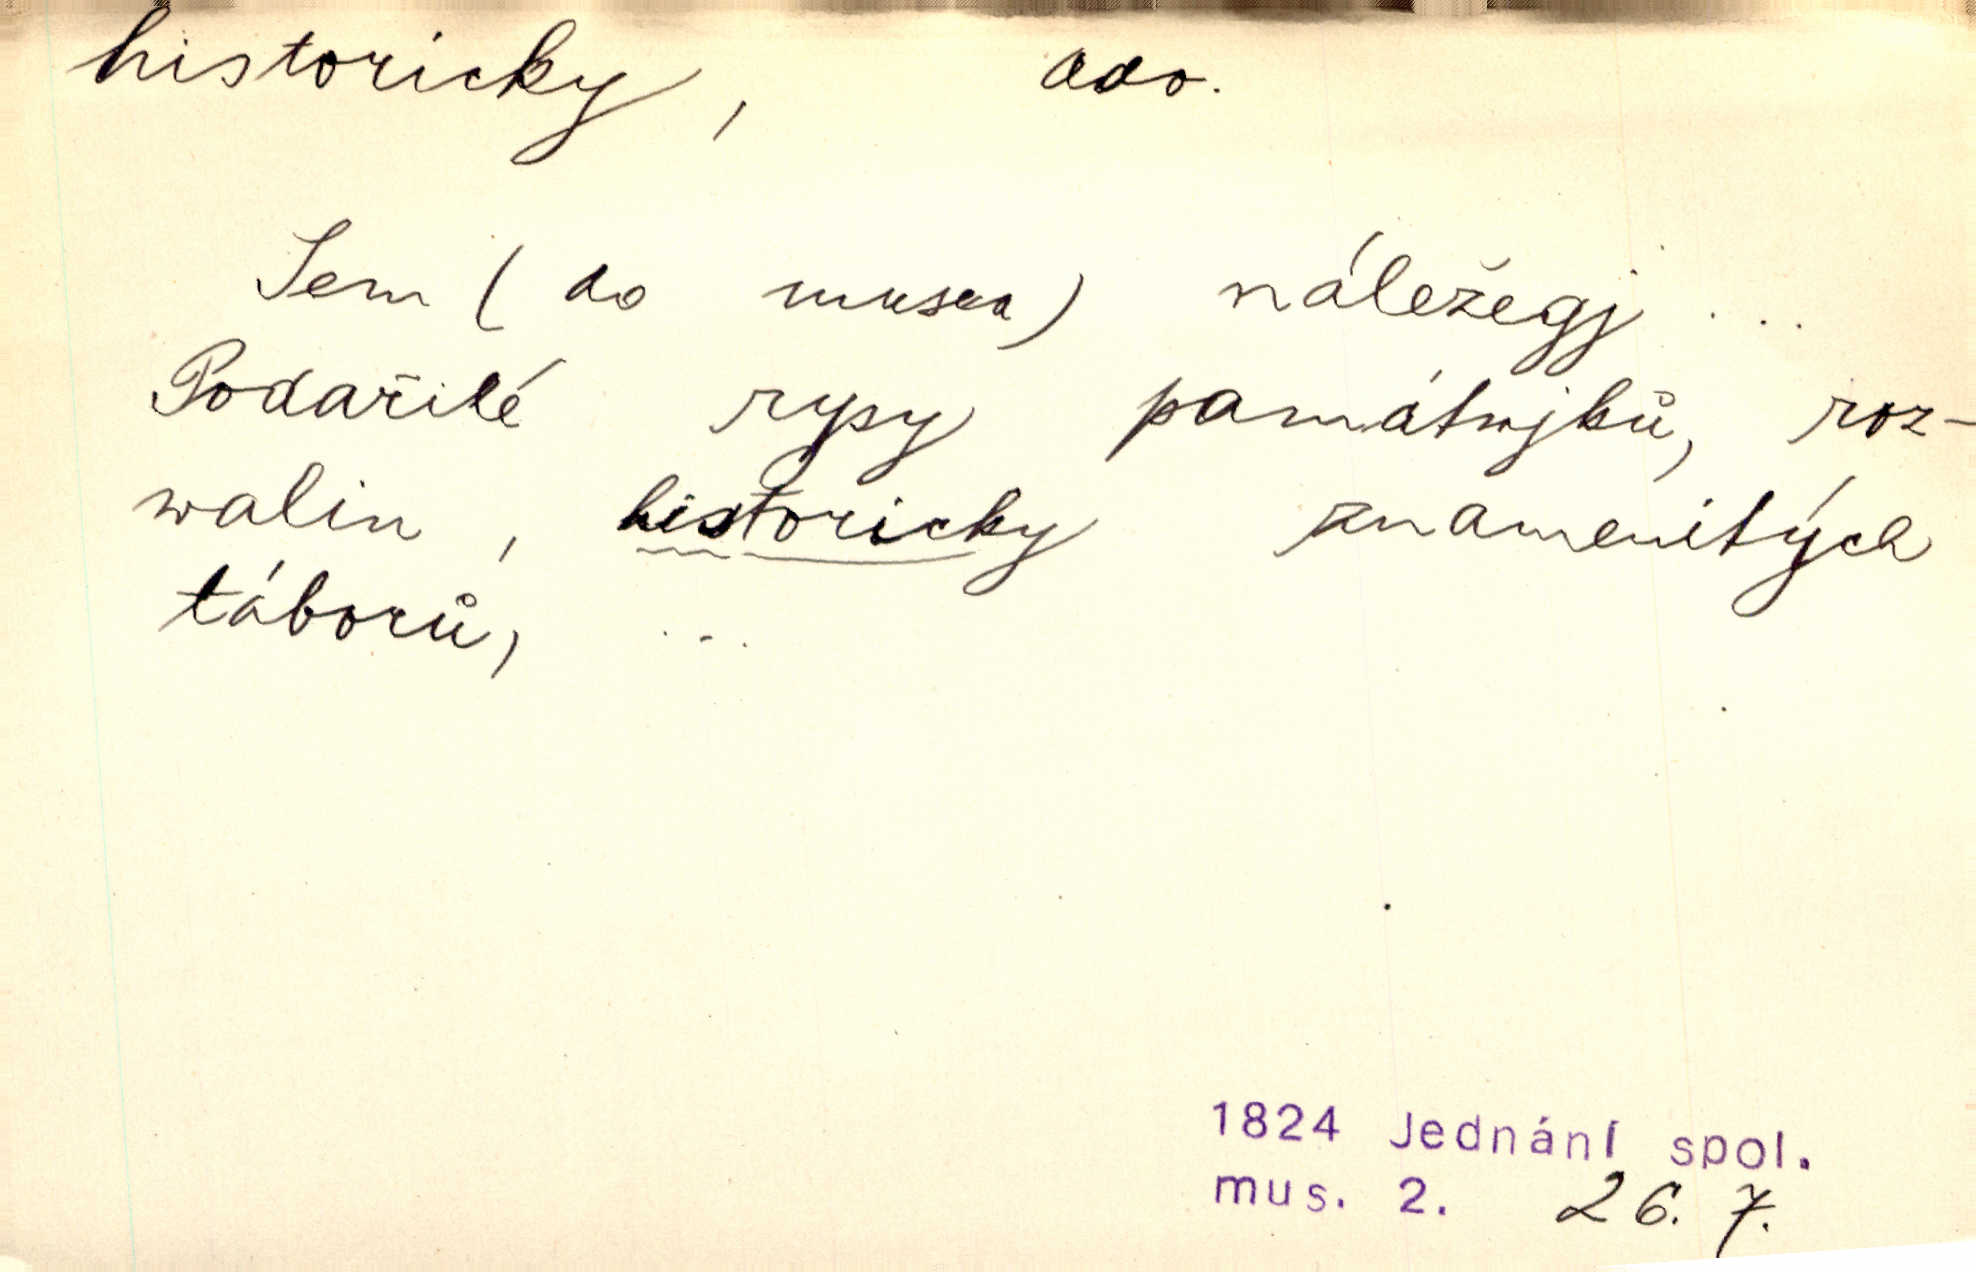 historicky, adv.
Sem (do musea) náležegj ...
Podařilé rysy památnjků, roz-
walin, historicky znamenitých
táborů, ...
1824 Jednání spol.
mus. 2. 26. 7.